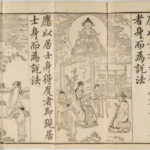 者身而為說法
應以居士身得度者即現居
士身而為說法